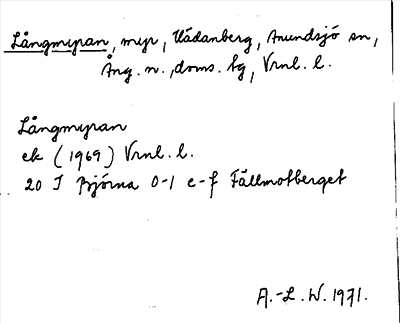 Långmyran, myr, Uådanberg, Anundsjö sn,
Ång. n., doms. bg, Vrnl. l.
Långmyran
ek (1969) Vrnl. l.
20 J Björna 0-1 e-f Fällmotberget
A.-L. W. 1971.